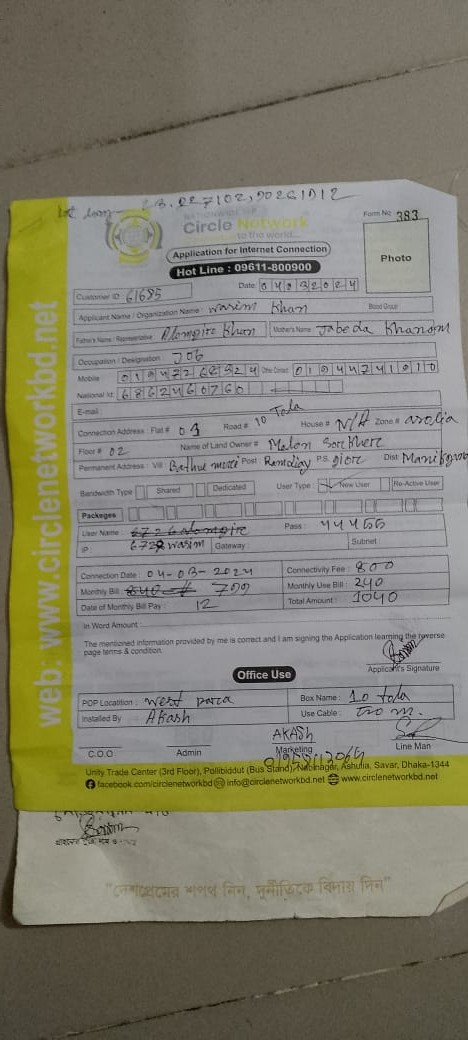 23.887102,90261012
NATIONWIDE ISP
Form No 383
Circle Network
to the world...
Application for Internet Connection
Photo
Hot Line : 09611-800900
Date: 04032024
Customer ID : 61685
Applicant Name / Organization Name : Wasim Khan Blood Group:
Father's Name / Representative : Alomgire Khan Mother's Name : Jabeda Khanom
Occupation / Designation : JOB
Mobile 01944741010
National Id: 6862460760
E-mail
Connection Address : Flat # 04 Road # 10 Tala House # N/A Zone #
Floor # 02 Name of Land Owner #
Permanent Address : Vill Post : P.S. Dist:
Bandwidth Type Shared Dedicated User Type : New User Re-Active User
Packages
User Name : 6726alomgire Pass : 44455
IP : 6728wasim Gateway : Subnet :
Connection Date : 04-03-2024 Connectivity Fee : 800
Monthly Bill : 840 799 Monthly Use Bill : 240
Date of Monthly Bill Pay : 12 Total Amount : 1040
In Word Amount :
The mentioned information provided by me is correct and I am signing the Application learning the reverse
page terms & condition.
Applicant's Signature
Office Use
POP Locatition : west para Box Name : 10 tola
Installed By AKash Use Cable : m.
AKASH
C.O.O Admin Marketing Line Man
Unity Trade Center (3rd Floor), Pollibiddut (Bus Stand), Nabinagar, Ashulia, Savar, Dhaka-1344
facebook.com/circlenetworkbd info@circlenetworkbd.net www.circlenetworkbd.net
web: www.circlenetworkbd.net
"দেশপ্রেমের শপথ নিন, দুর্নীতিকে বিদায় দিন"